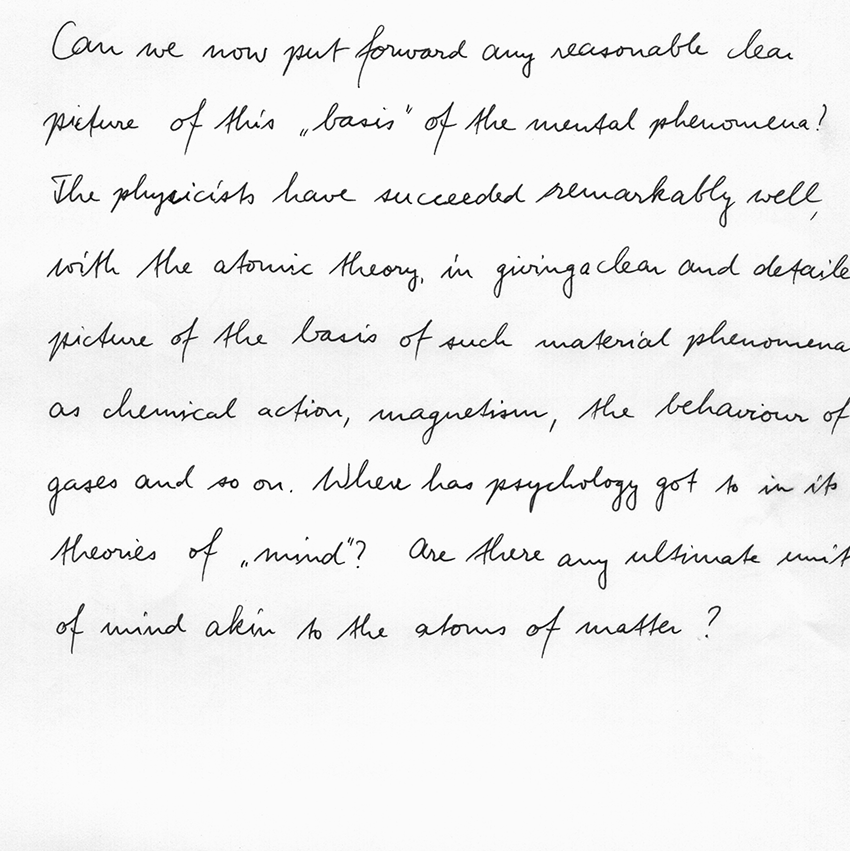 Can we now put forward any reasonable clear
picture of this „basis" of the mental phenomena?
The physicists have succeeded remarkably well,
with the atomic theory, in giving a clear and detaile
picture of the basis of such material phenomena
as chemical action, magnetism, the behaviour of
gases and so on. Where has psychology got to in its
theories of „mind"? Are there any ultimate unit
of mind akin to the atoms of matter?